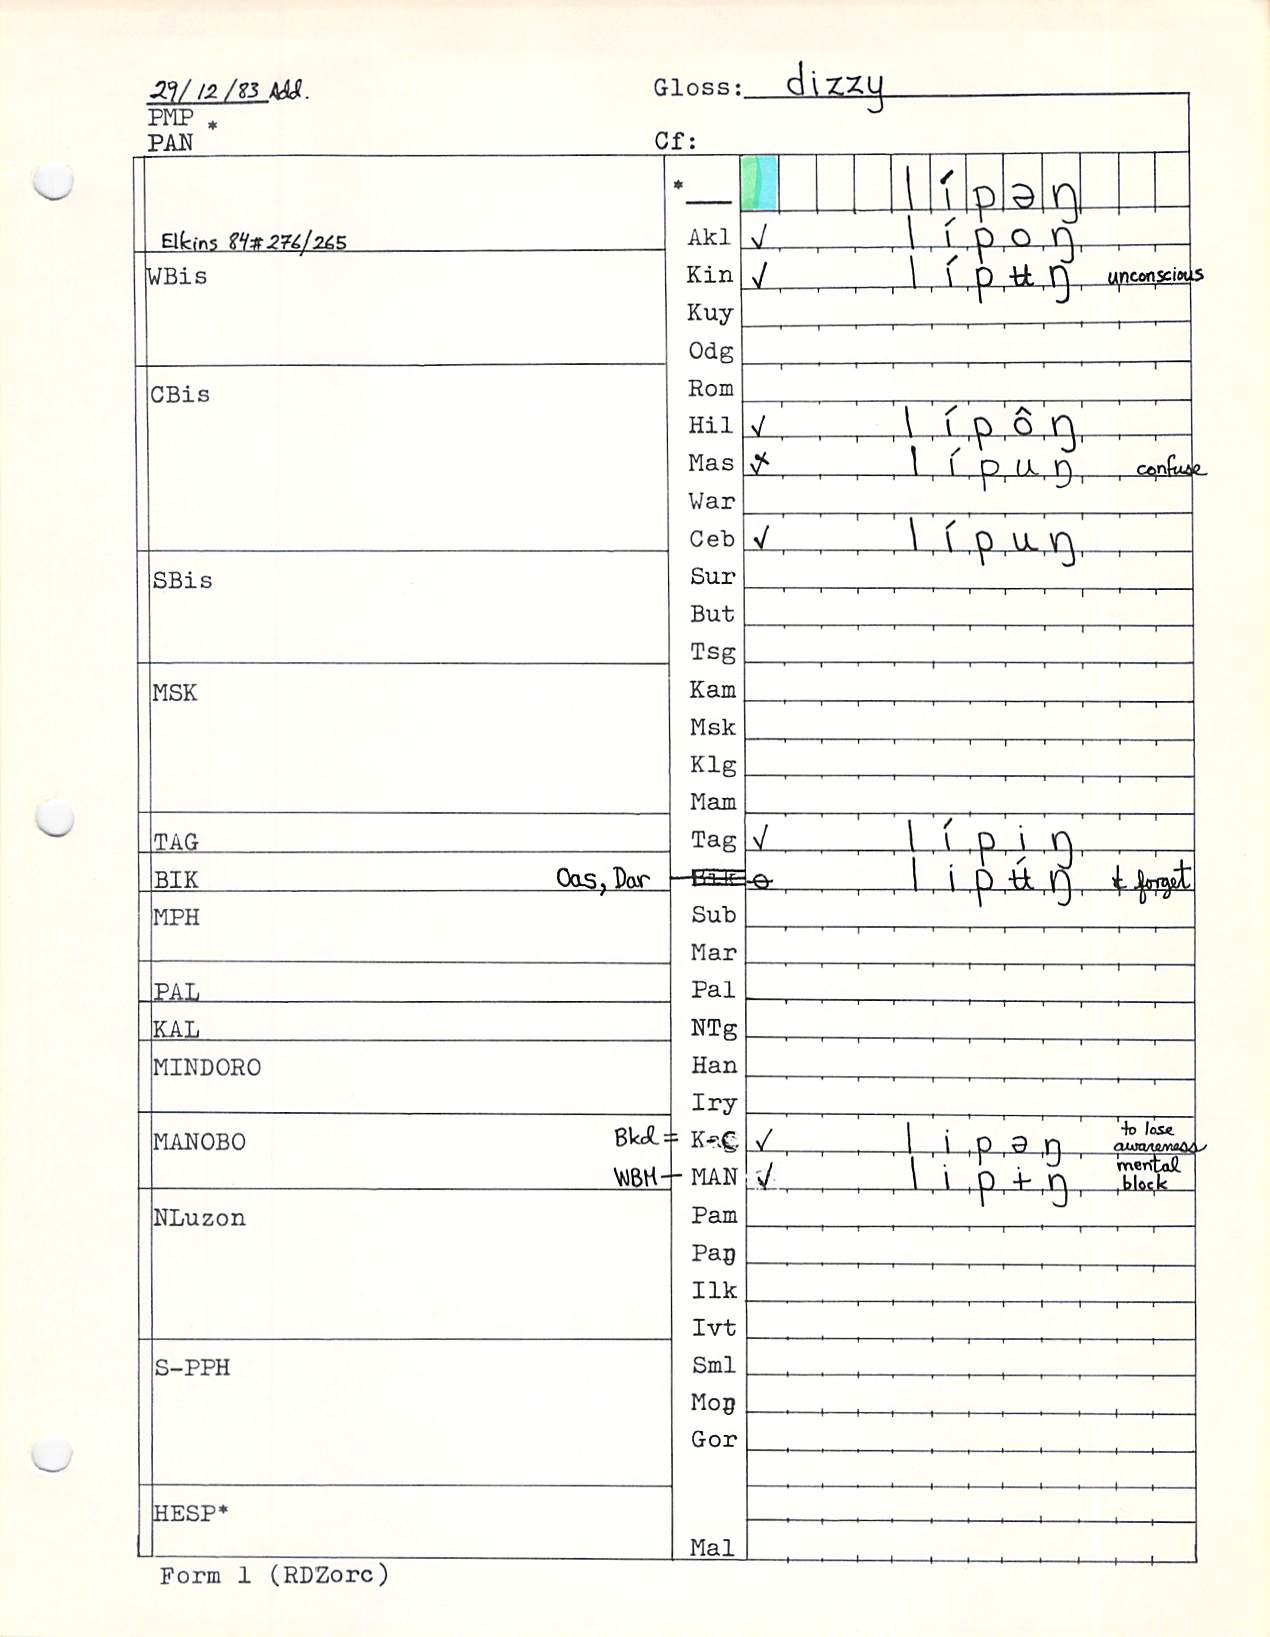 29/12/83 Add. Gloss: dizzy
PMP
PAN * Cf:
* lípəŋ
Elkins 84#276/265 Akl ✓ lípoŋ
WBis Kin ✓ lípʉŋ unconscious
Kuy
Odg
CBis Rom
Hil ✓ lípôŋ
Mas lípuŋ confuse
War
Ceb ✓ lípuŋ
SBis Sur
But
Tsg
MSK Kam
Msk
Klg
Mam
TAG Tag ✓ lípiŋ
BIK Oas, Dar lipʉ́ŋ forget
MPH Sub
Mar
PAL Pal
KAL NTg
MINDORO Han
Iry
MANOBO Bkd = K-C ✓ lipəŋ to lose awareness
WBM — MAN ✓ lipɨŋ mental block
NLuzon Pam
Paŋ
Ilk
Ivt
S-PPH Sml
Moŋ
Gor
HESP*
Mal
Form 1 (RDZorc)